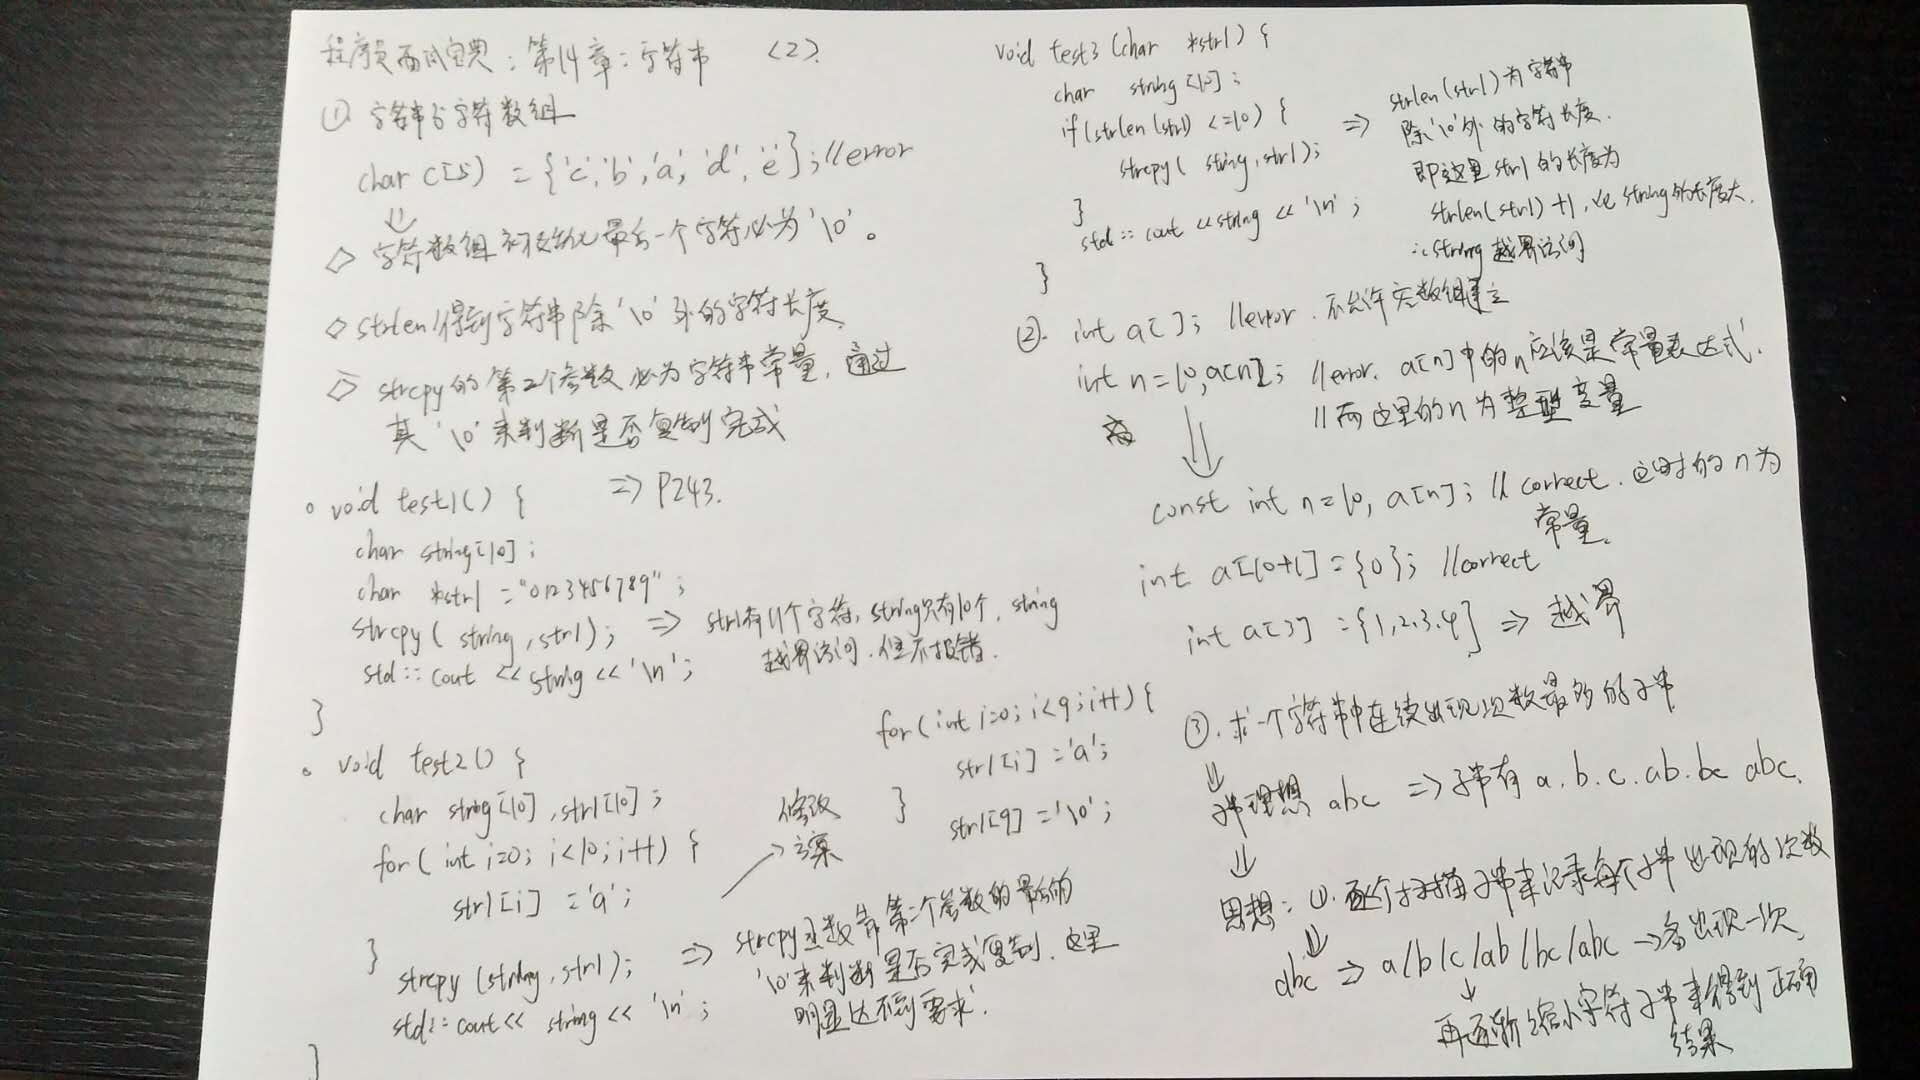 程序员面试宝典：第14章：字符串 <2>.
① 字符串与字符数组
char c[5) = {'c','b','a','d','e'};//error
⇓
◇ 字符数组初始化最后一个字符必为'\0'。
◇ strlen得到字符串除'\0'外的字符长度.
◇ strcpy的第2个参数必为字符串常量, 通过
其'\0'来判断是否复制完成
。void test1() { => P243.
char string[10];
char *str1 = "0123456789";
strcpy( string,str1); => str1有11个字符, string只有10个, string
越界访问.但不报错.
std::cout << string << '\n';
}
。void test2() {
char string[10],str1[10];
for( int i=0; i<10;i++) {
str1[i] = 'a';
}
strcpy (string,str1); => strcpy函数靠第二个参数的最后的
'\0'来判断是否完成复制.这里
明显达不到要求.
std::cout<< string << '\n';
}
修改
方案
for( int i=0; i<9;i++) {
str1[i] ='a';
}
str1[9] ='\0';
void test3 (char *str1) {
char string [10];
if(strlen (str1) <=10) {
strcpy( string,str1);
}
std::cout <<string << '\n';
}
=> strlen(str1)为字符串
除'\0'外的字符长度.
即这里str1的长度为
strlen(str1)+1, 比string的长度大.
∴string越界访问
②. int a[ ]; //error.不允许空数组建立
int n=10,a[n]; //error. a[n]中的n应该是常量表达式.
//而这里的n为整型变量
⇓
const int n=10, a[n]; // correct.这时的n为
常量.
int a[10+1] = {0}; //correct
int a[3] = {1,2,3,4} => 越界
③. 求一个字符串中连续出现次数最多的子串
⇓
子串理想 abc => 子串有 a.b.c.ab.bc abc.
⇓
思想: ①.逐个扫描子串来记录每个子串出现的次数
⇓
abc => a/b/c/ab/bc/abc →各出现一次,
↓
再逐渐缩小字符子串来得到正确
结果